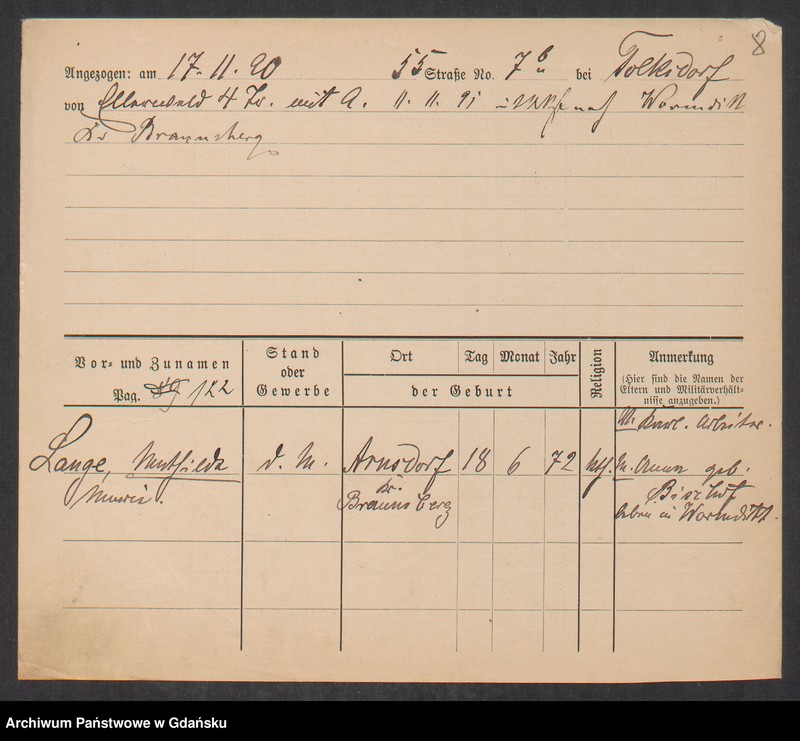 8
Angezogen: am 17. 11. 90 55 Straße No. 7 b bei Tolksdorf
von Ellerwald 4 Tr. mit A. 11. 11. 91 nach Wormditt
Kr Braunsberg
Vor- und Zunamen
Pag. 122
Stand
oder
Gewerbe
Ort Tag Monat Jahr
der Geburt
Religion
Anmerkung
(Hier sind die Namen der
Eltern und Militärverhält-
nisse anzugeben.)
Lange, Mathilde
d. M.
Arnsdorf
Kr.
Braunsberg
18 6 72
kth.
V. Karl. Arbeiter.
M. Anna geb.
Bischof
leben in Wormditt.
Archiwum Państwowe w Gdańsku